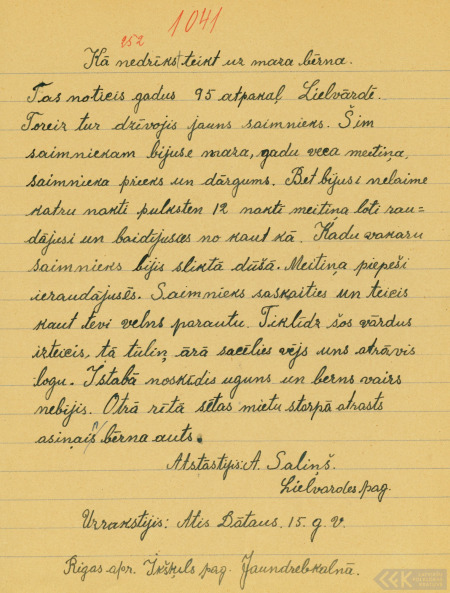 1041
252
Kā nedrīkst teikt uz maza bērna.
Tas noticis gadus 95 atpakaļ Lielvārdē.
Toreiz tur dzīvojis jauns saimnieks. Šim
saimniekam bijuse maza, gadu veca meitiņa,
saimnieka prieks un dārgums. Bet bijusi nelaime
katru nakti pulksten 12 naktī meitiņa ļoti rau-
dājusi un baidījusēs no kaut kā. Kādu vakaru
saimnieks bijis sliktā dūšā. Meitiņa piepeši
ieraudājusēs. Saimnieks saskaities un teicis
kaut tevi velns parautu. Tiklīdz šos vārdus
izteicis, tā tūliņ ārā sacēlies vējs uns atrāvis
logu. Istabā noskēdis uguns un berns vairs
nebijis. Otrā rītā sētas mietu starpā atrasts
asiņais bērna auts.
Atstāstījis: A. Saliņš.
Lielvardes pag.
Uzrakstījis: Atis Dātaus. 15. g. v.
Rīgas apr. Ikšķils pag. Jaundrebkalnā.